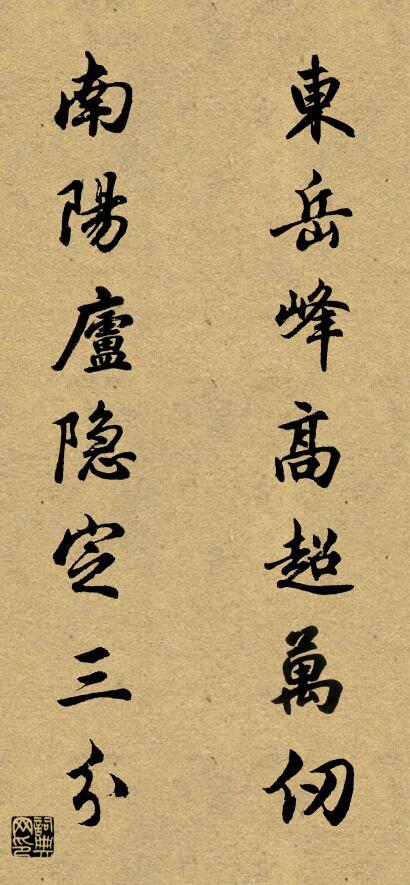 東岳峰高超萬仞
南陽廬隐定三分
詞典网印